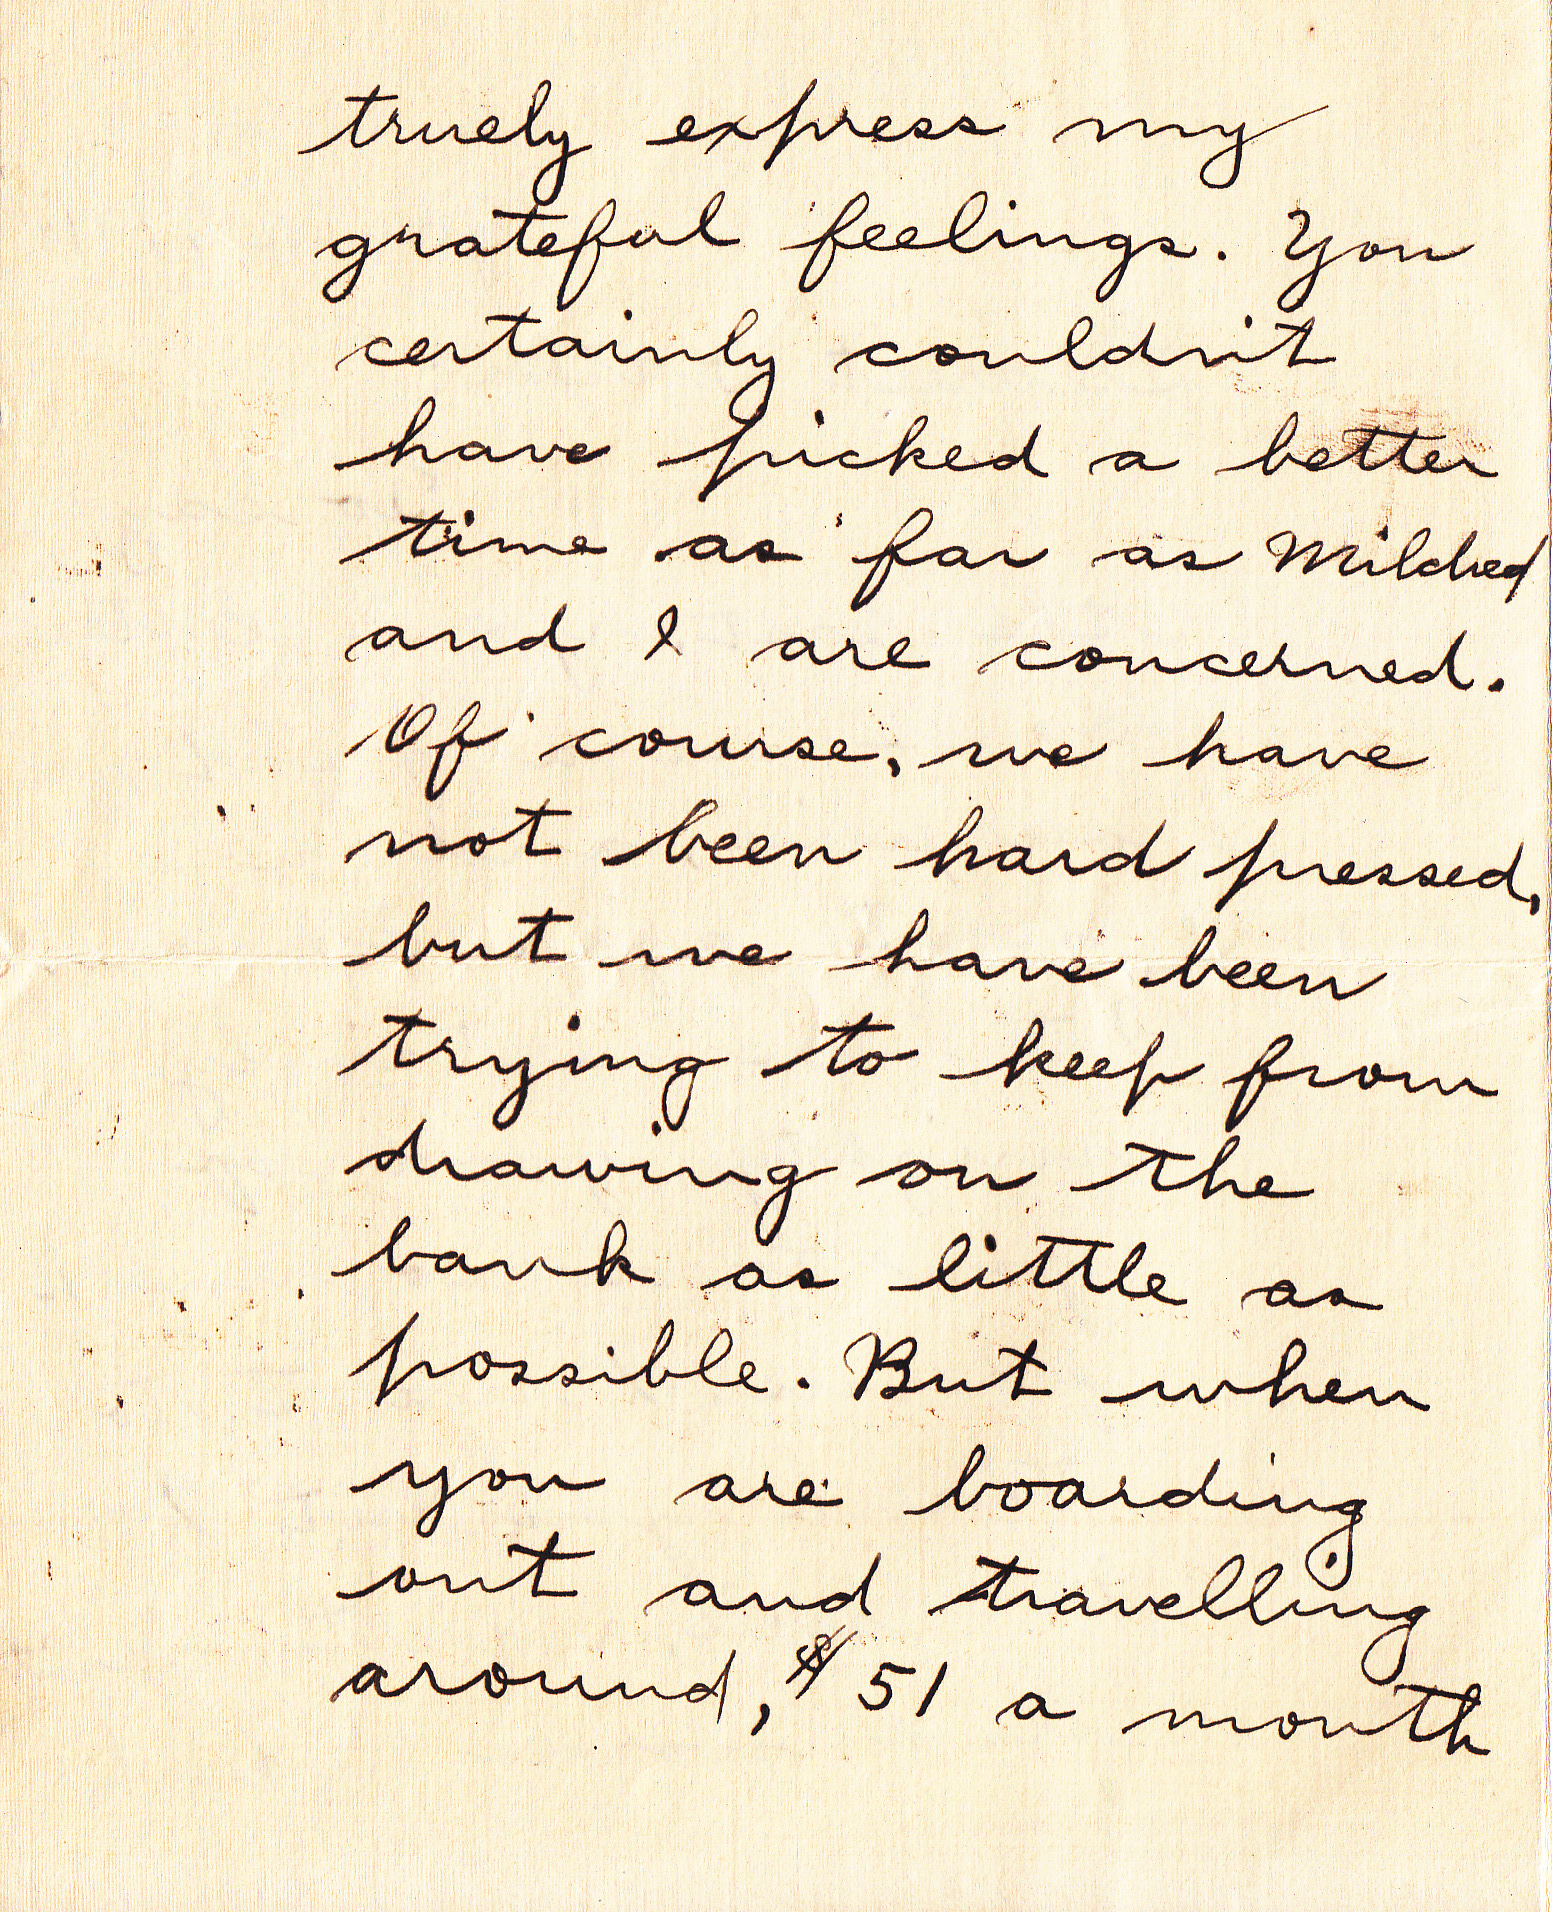 truely express my
grateful feelings. You
certainly couldn't
have picked a better
time as far as Mildred
and I are concerned.
Of course, we have
not been hard pressed,
but we have been
trying to keep from
drawing on the
bank as little as
possible. But when
you are boarding
out and travelling
around, $51 a month